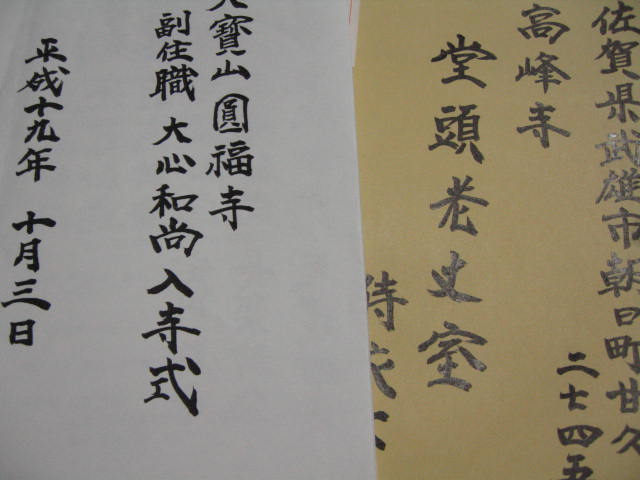 佐賀県武雄市朝日町甘久
二七四五
高峰寺
堂頭老丈室
侍衣
大寶山圓福寺
副住職 大心和尚入寺式
平成十九年 十月三日